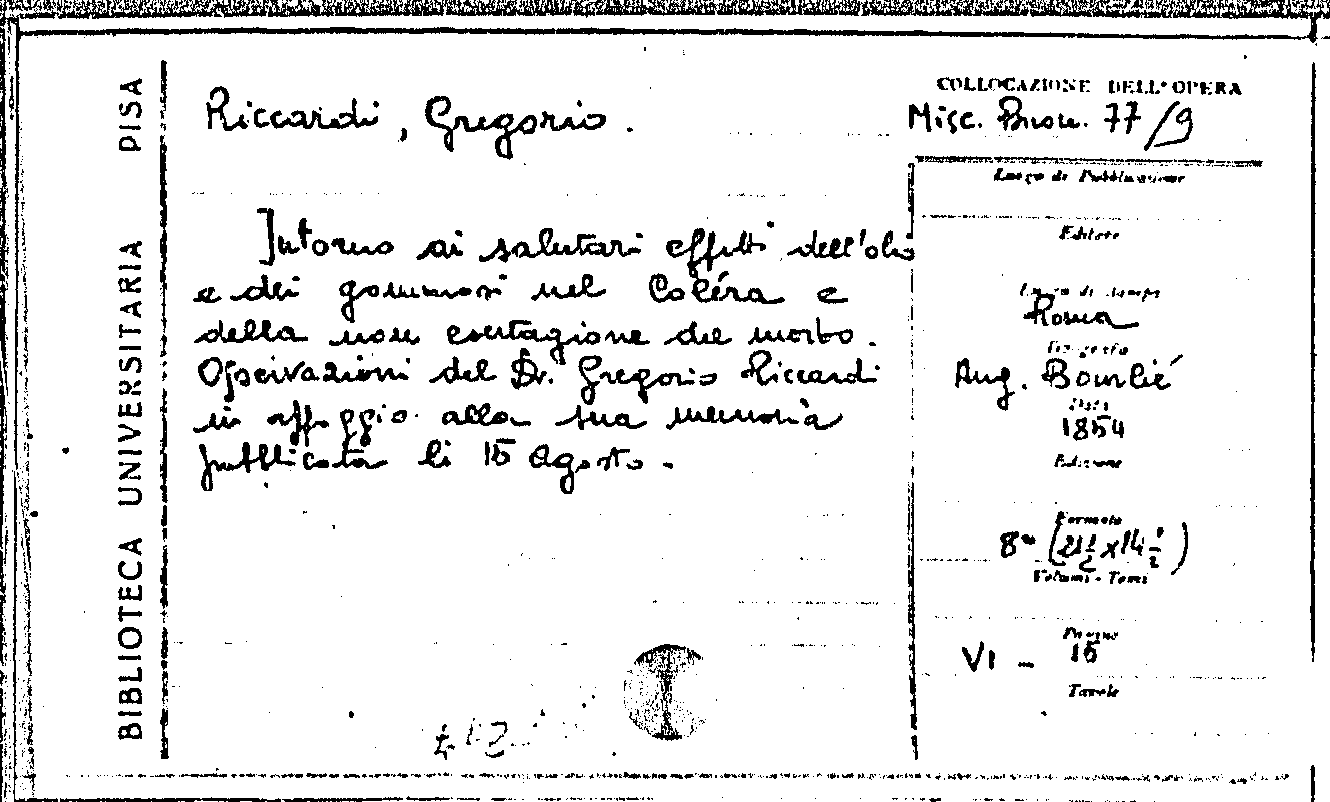 BIBLIOTECA UNIVERSITARIA PISA
Riccardi, Gregorio.
Intorno ai salutari effetti dell'olio
e dei gommosi nel Coléra e
della non contagione del morbo.
Osservazioni del Dr. Gregorio Riccardi
in appoggio alla sua memoria
pubblicata li 15 Agosto.
COLLOCAZIONE DELL'OPERA
Misc. 77/9
Luogo di Pubblicazione
Editore
Luogo di stampa
Roma
Tipografia
Aug. Bourlié
Data
1854
Edizione
Formato
8° (21½ x 14½)
Volumi - Tomi
Pagine
VI - 15
Tavole